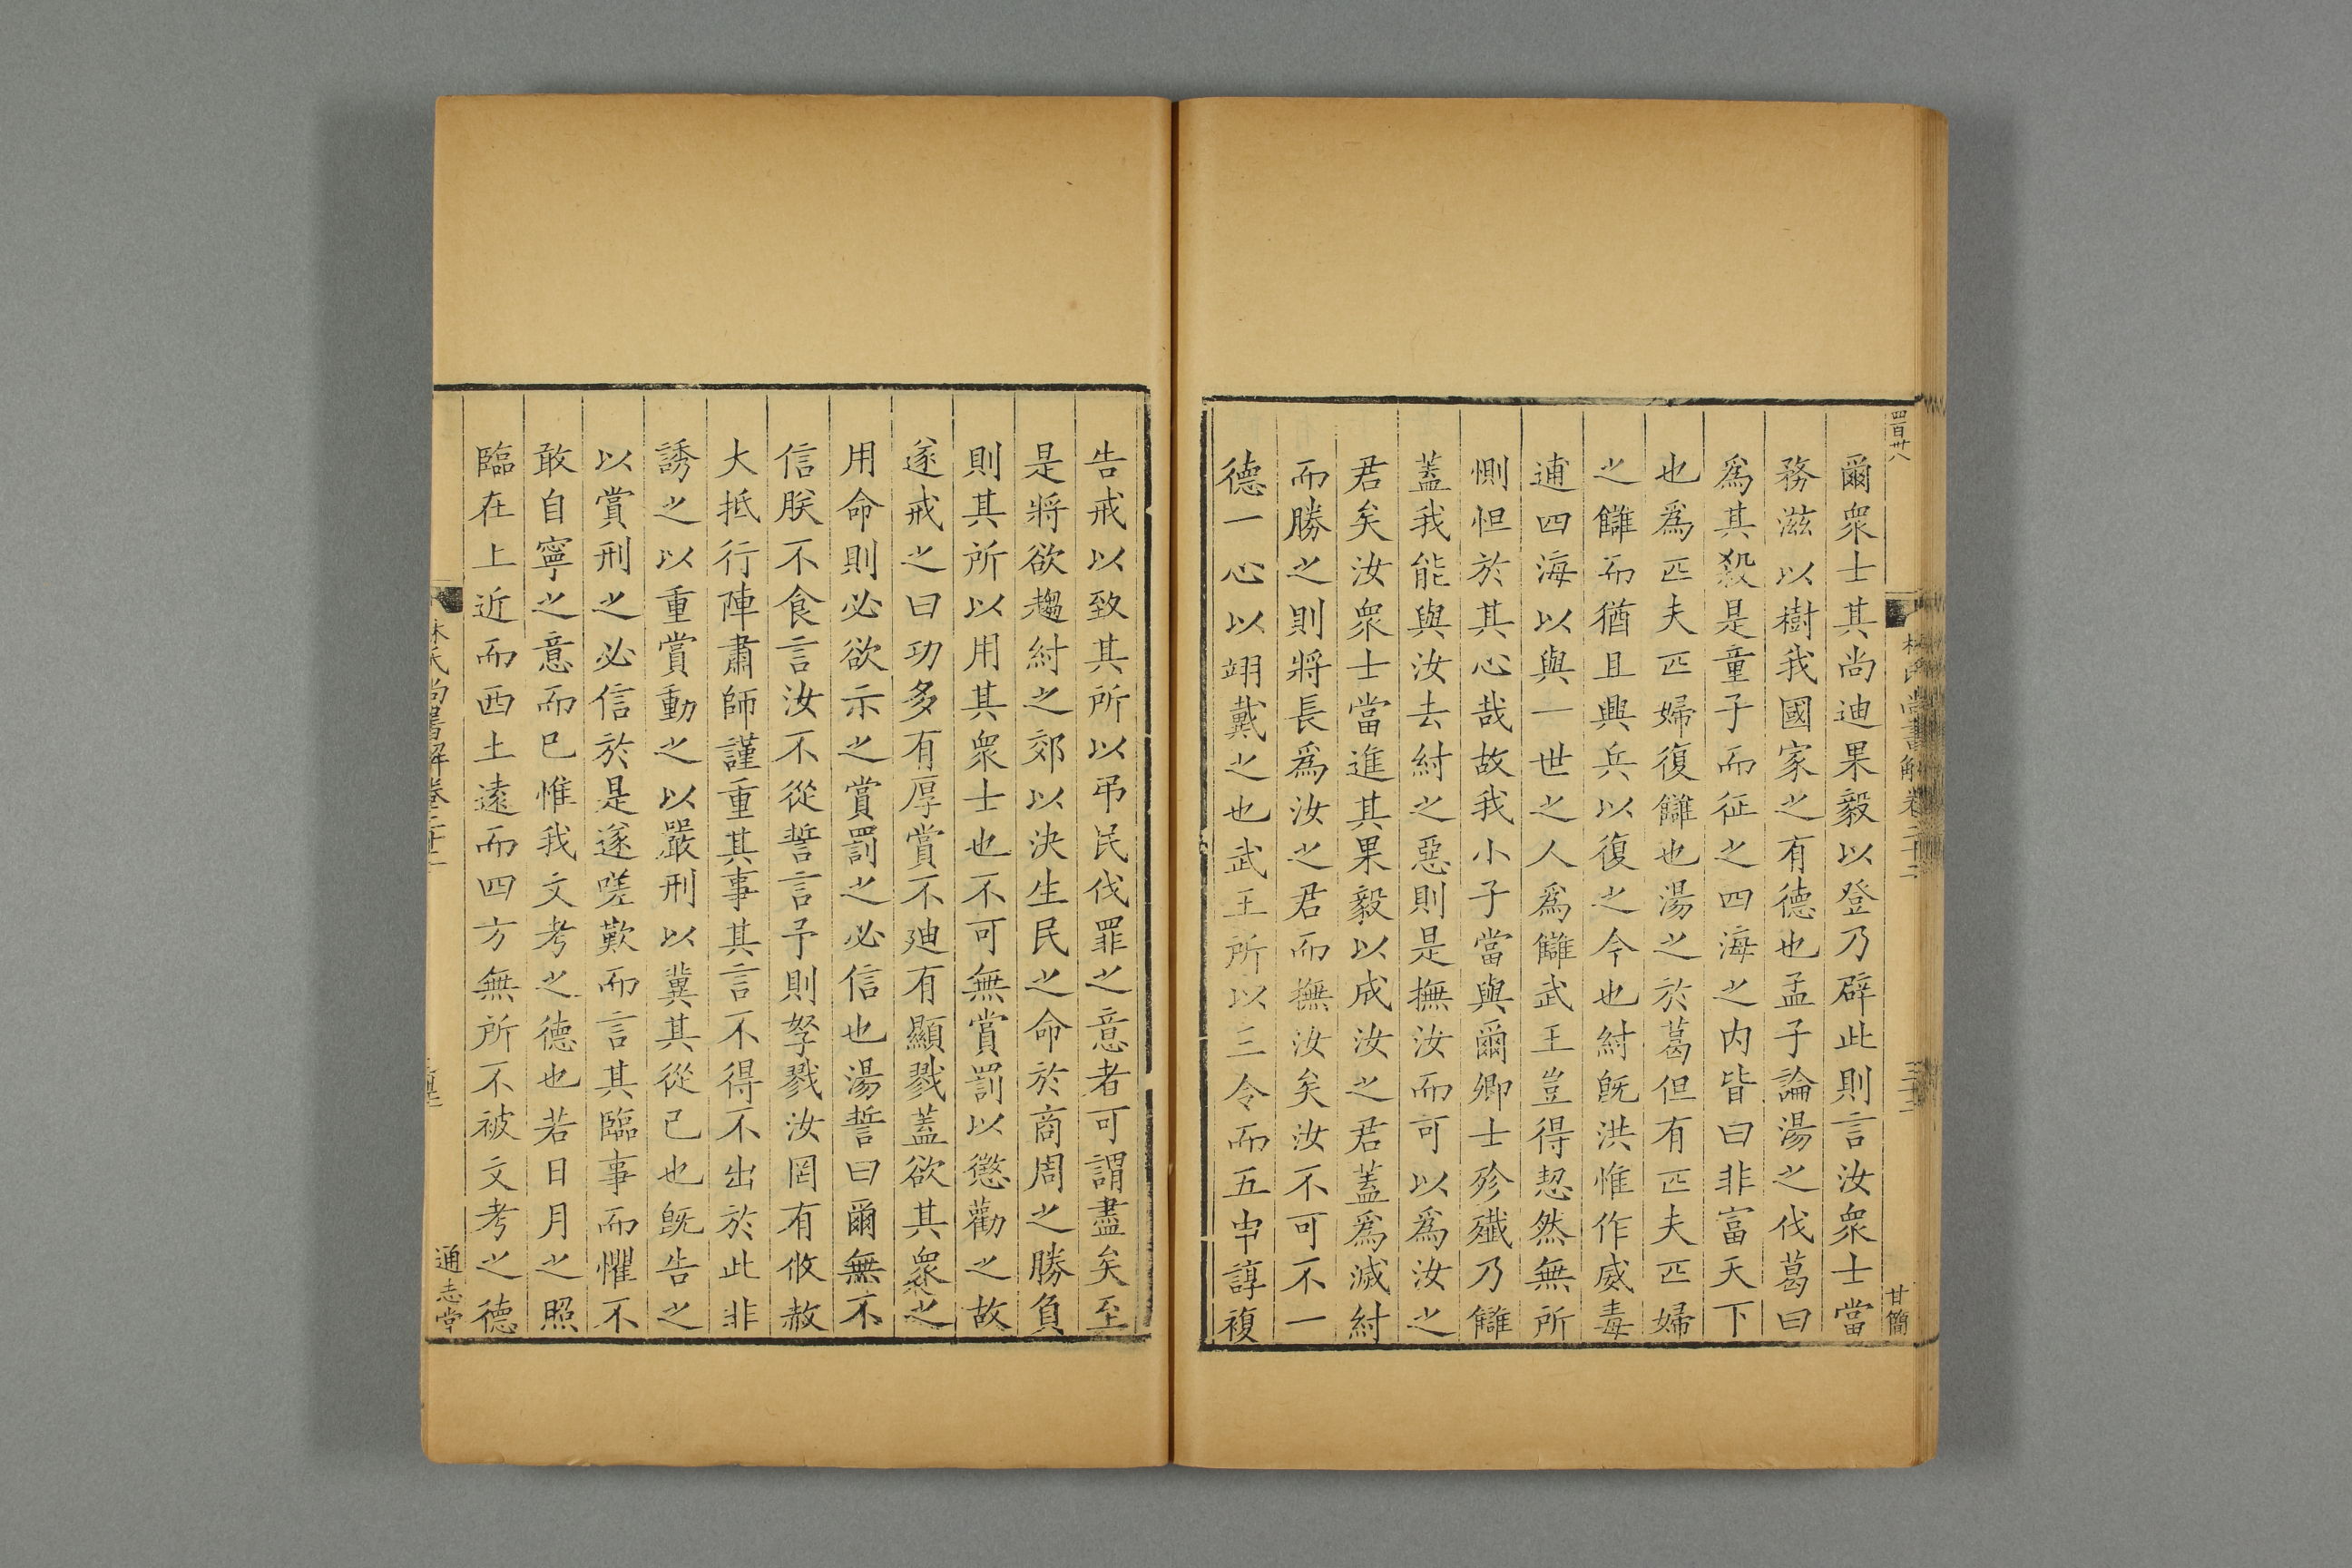 四百卅八
林氏尚書解卷二十二
甘簡
爾衆士其尚迪果毅以登乃辟此則言汝衆士當
務滋以樹我國家之有德也孟子論湯之伐葛曰
爲其殺是童子而征之四海之内皆曰非富天下
也爲匹夫匹婦復讎也湯之於葛但有匹夫匹婦
之讎而猶且興兵以復之今也紂旣洪惟作威毒
逋四海以與一世之人爲讎武王豈得恝然無所
惻怛於其心哉故我小子當與爾卿士殄殲乃讎
蓋我能與汝去紂之惡則是撫汝而可以爲汝之
君矣汝衆士當進其果毅以成汝之君蓋爲滅紂
而勝之則將長爲汝之君而撫汝矣汝不可不一
德一心以翊戴之也武王所以三令而五申諄複
告戒以致其所以弔民伐罪之意者可謂盡矣至
是將欲趨紂之郊以決生民之命於商周之勝負
則其所以用其衆士也不可無賞罰以懲勸之故
遂戒之曰功多有厚賞不廸有顯戮蓋欲其衆之
用命則必欲示之賞罰之必信也湯誓曰爾無不
信朕不食言汝不從誓言予則孥戮汝罔有攸赦
大抵行陣肅師謹重其事其言不得不出於此非
誘之以重賞動之以嚴刑以冀其從己也旣告之
以賞刑之必信於是遂嗟歎而言其臨事而懼不
敢自寧之意而巳惟我文考之德也若日月之照
臨在上近而西土遠而四方無所不被文考之德
林氏尚書解卷二十二
通志堂